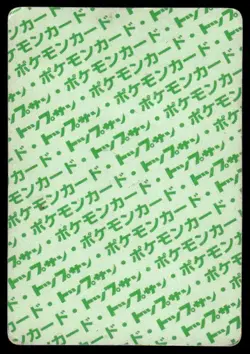 ポケモンカード・
トップサン・ポケモンカード・
ポケモンカード・トップサン・
トップサン・ポケモンカード・
ポケモンカード・トップサン・
トップサン・ポケモンカード・
ポケモンカード・トップサン・
トップサン・ポケモンカード・
ポケモンカード・トップサン・
トップサン・ポケモンカード・
ポケモンカード・トップサン・
トップサン・ポケモンカード・
ポケモンカード・トップサン・
トップサン・ポケモンカード・